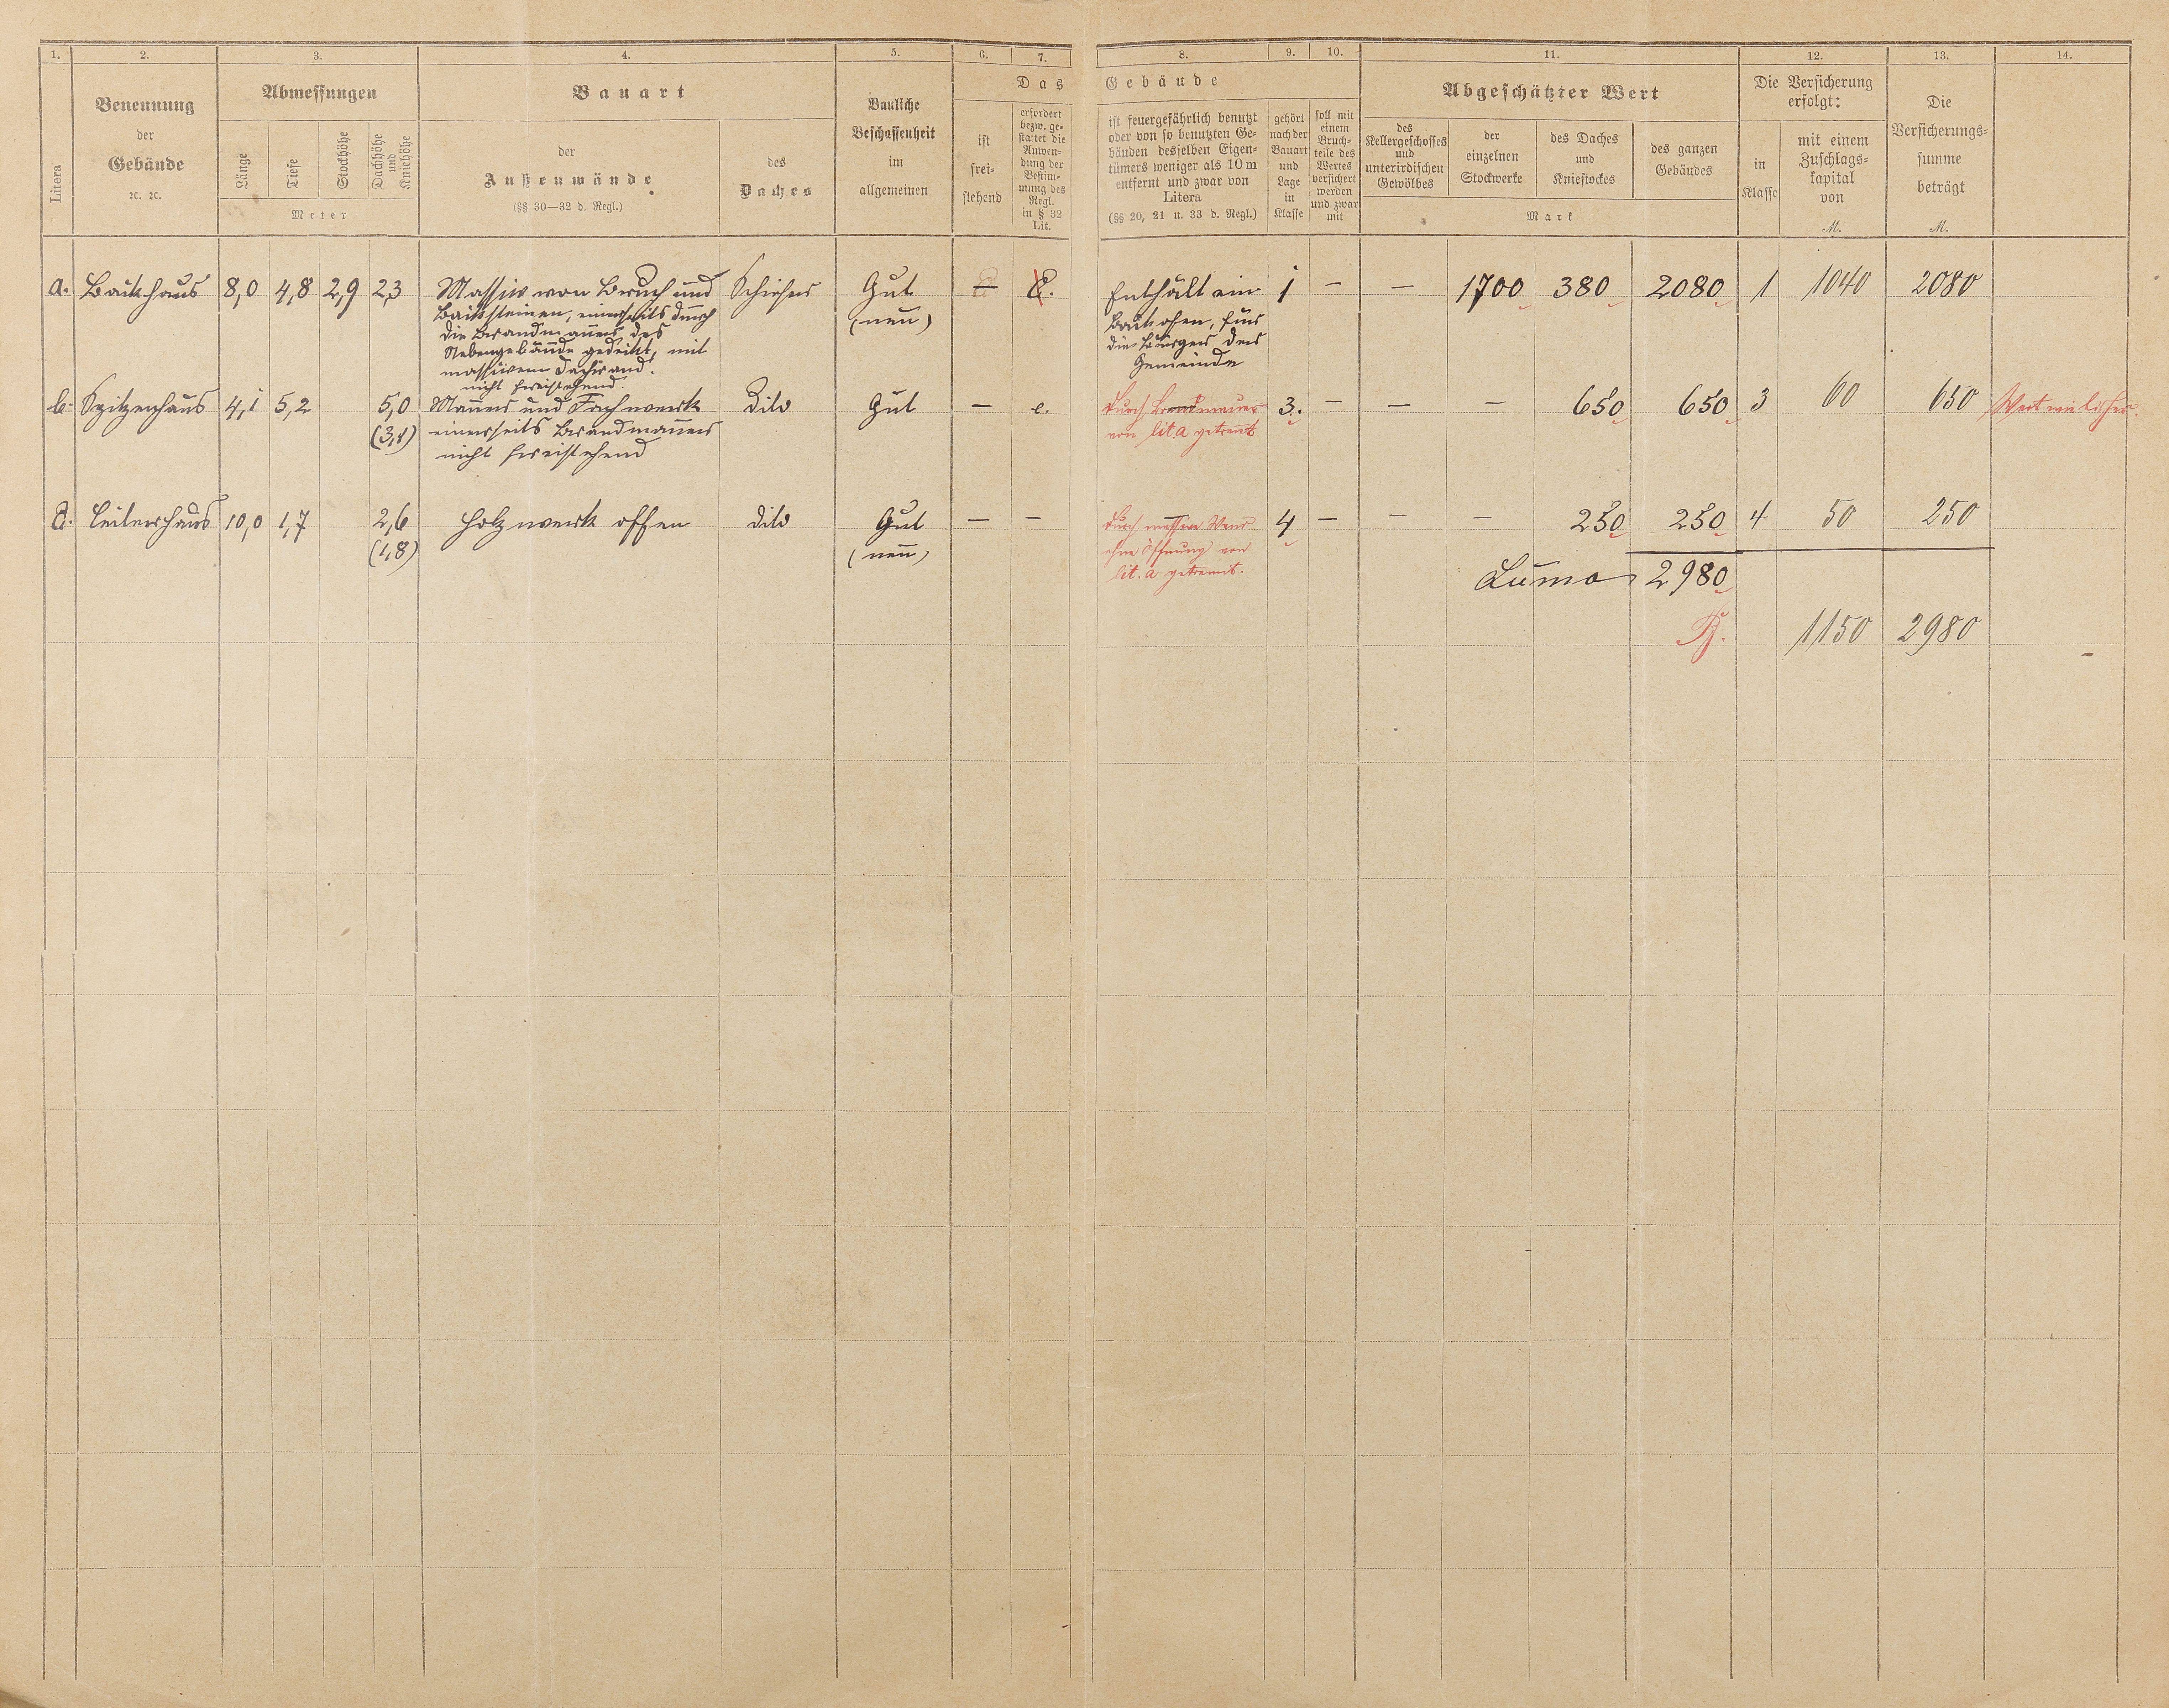 1. 2. 3. 4. 5. 6. 7. 8. 9. 10. 11. 12. 13. 14.
Litera
Benennung
der
Gebäude
ꝛc. ꝛc.
Abmessungen
Länge
Tiefe
Stockhöhe
Dachhöhe
und
Kniehöhe
Meter
Bauart
der
Außenwände
(§§ 30—32 d. Regl.)
des
Daches
Bauliche
Beschaffenheit
im
allgemeinen
Das Gebäude
ist
frei-
stehend
erfordert
bezw. ge-
stattet die
Anwen-
dung der
Bestim-
mung des
Regl.
in § 32
Lit.
ist feuergefährlich benutzt
oder von so benutzten Ge-
bäuden desselben Eigen-
tümers weniger als 10 m
entfernt und zwar von
Litera
(§§ 20, 21 u. 33 d. Regl.)
gehört
nach der
Bauart
und
Lage
in
Klasse
soll mit
einem
Bruch-
teile des
Wertes
versichert
werden
und zwar
mit
Abgeschätzter Wert
des
Kellergeschosses
und
unterirdischen
Gewölbes
der
einzelnen
Stockwerke
des Daches
und
Kniestockes
des ganzen
Gebäudes
Mark
Die Versicherung
erfolgt:
in
Klasse
mit einem
Zuschlags-
kapital
von
M.
Die
Versicherungs-
summe
beträgt
M.
a. Backhaus 8,0 4,8 2,9 2,3 Massiv von Bruch und Schiefer Gut — Enthält ein 1 — — 1700 380 2080 1 1040 2080
Backsteinen, einerseits durch (neu) Backofen, für
die Brandmauer des die Bürger der
Nebengebäude gedeckt, mit Gemeinde
massivem Dachrand.
nicht freistehend.
b. Spitzenhaus 4,1 5,2 5,0 Mauer und Fachwerk Dito Gut — e. durch Brandmauer 3. — — — 650 650 3 60 650 Wert wie bisher.
(3,8) einerseits Brandmauer von lit. a getrennt
nicht freistehend
c. Leiterhaus 10,0 1,7 2,6 Holzwerk offen dito Gut — — durch massive Wand 4 — — — 250 250 4 50 250
(1,8) (neu) ohne Öffnung von
lit. a getrennt.
Suma 2980
1150 2980